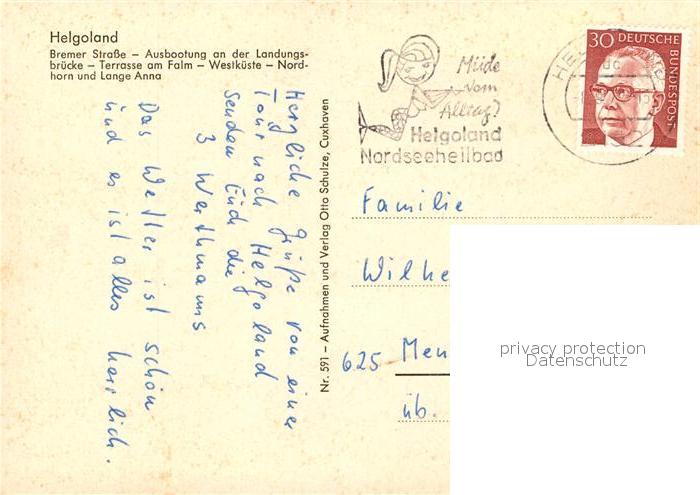 Helgoland
Bremer Straße – Ausbootung an der Landungs-
brücke – Terrasse am Falm – Westküste – Nord-
horn und Lange Anna
Herzliche Grüße von einer
1 Tg Tour nach Helgoland
senden Euch die
3 Werthmanns
Das Wetter ist schön
und es ist alles herrlich.
Nr. 591 – Aufnahmen und Verlag Otto Schulze, Cuxhaven
Müde
vom
Alltag?
Helgoland
Nordseeheilbad
HEL
30 DEUTSCHE
BUNDESPOST
Familie
Wilhe
625 Men
üb.
privacy protection
Datenschutz